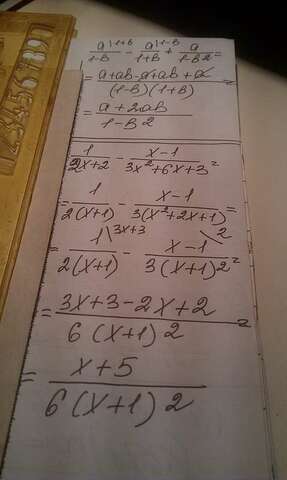 a\1+B/1-B - a\1-B/1+B + a/1-B2 =
= a+aB-a+aB+a/(1-B)(1+B) =
= a+2aB/1-B2
1/2x+2 - x-1/3x²+6x+3 =
= 1/2(x+1) - x-1/3(x²+2x+1) =
= 1\3x+3/2(x+1) - x-1\2/3(x+1)2 =
= 3x+3-2x+2/6(x+1)2 =
= x+5/6(x+1)2